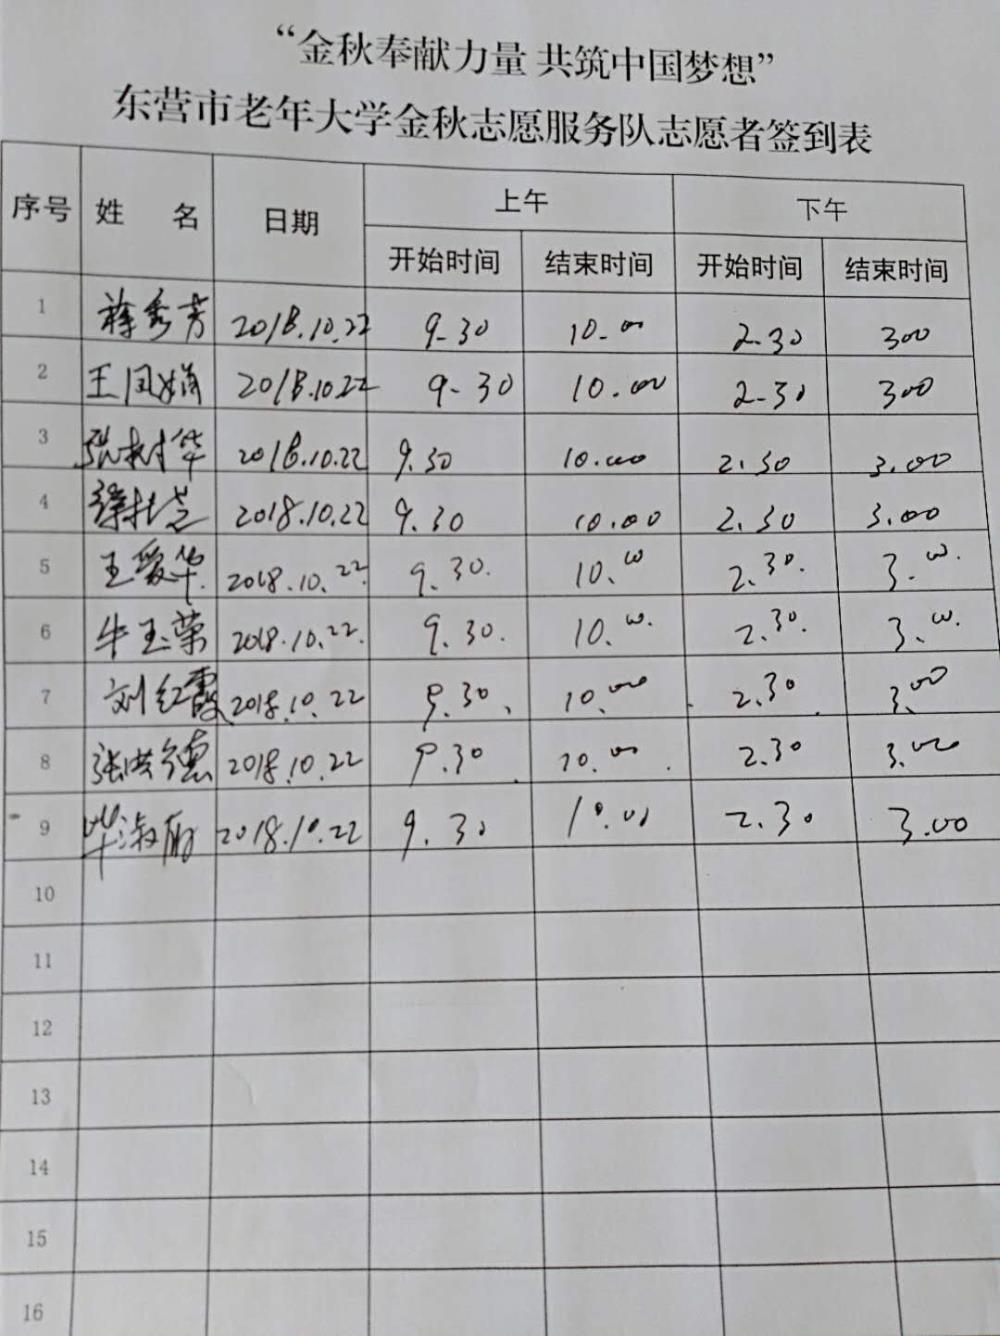 “金秋奉献力量 共筑中国梦想”
东营市老年大学金秋志愿服务队志愿者签到表
序号 姓 名 日期 上午 下午
开始时间 结束时间 开始时间 结束时间
1 蒋秀芳 2018.10.22 9-30 10-00 2-30 300
2 王凤娟 2018.10.22 9-30 10.00 2-30 300
3 张树华 2018.10.22 9.30 10.00 2.30 3.00
4 2018.10.22 9.30 10.00 2.30 3.00
5 王爱华 2018.10.22 9.30. 10.00 2.30. 3.00.
6 牛玉荣 2018.10.22. 9.30. 10.00. 2.30. 3.00.
7 刘红霞 2018.10.22 9.30 10.00 2.30 3.00
8 张洪德 2018.10.22 9.30 10.00 2.30 3.00
9 毕淑丽 2018.10.22 9.30 10.00 2.30 3.00
10
11
12
13
14
15
16